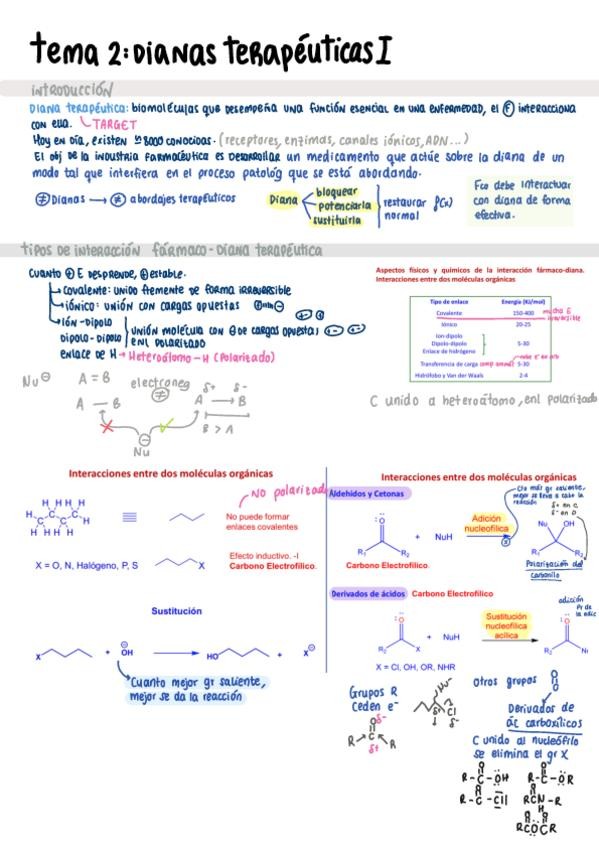 tema 2: Dianas Terapéuticas I
introducción
Diana terapéutica: biomoléculas que desempeña una función esencial en una enfermedad, el Ⓕ interacciona
con ella. ↳ TARGET
Hoy en día, existen ≃ 8000 conocidas. (receptores, enzimas, canales iónicos, ADN...)
El obj de la industria farmacéutica es desarrollar un medicamento que actúe sobre la diana de un
modo tal que interfiera en el proceso patológ que se está abordando.
≠ Dianas → ≠ abordajes terapéuticos
Diana
bloquear
potenciarla
sustituirla
restaurar f(x)
normal
Fco debe interactuar
con diana de forma
efectiva.
tipos de interacción fármaco-diana terapéutica
Cuanto ⊕ E desprende, ⊕ estable.
↳ covalente: unido ftemente de forma irreversible
↳ iónico: unión con cargas opuestas
↳ ión-dipolo
dipolo-dipolo
unión molécula con Θ de cargas opuestas
enl polarizado
enlace de H → Heteroátomo-H (polarizado)
Aspectos físicos y químicos de la interacción fármaco-diana.
Interacciones entre dos moléculas orgánicas
Tipo de enlace Energía (KJ/mol)
Covalente 150-400 mucha E irreversible
Iónico 20-25
Ion-dipolo
Dipolo-dipolo 5-30
Enlace de hidrógeno
Transferencia de carga 5-30
Hidrófobo y Van der Waals 2-4
C unido a heteroátomo, enl polarizado
Nu⊖
A = B
electroneg
≠
δ+ δ-
A → B
A — B
B > A
Nu
Interacciones entre dos moléculas orgánicas
No polarizado
No puede formar
enlaces covalentes
X = O, N, Halógeno, P, S
X
Efecto inductivo. -I
Carbono Electrofílico.
Sustitución
X + OH → HO + X⊖
Cuanto mejor gr saliente,
mejor se da la reacción
Interacciones entre dos moléculas orgánicas
Aldehidos y Cetonas
Cto más gr saliente,
mejor se lleva a cabo la
reacción
δ+ en C
δ- en O
:O
R₁ R₂
+ NuH
Adición
nucleofílica
Nu OH
R₁ R₂
Carbono Electrofílico.
Polarización del
carbonilo
Derivados de ácidos Carbono Electrofílico
adición
:O
R₂ X
+ NuH
Sustitución
nucleofílica
acílica
:O
R₂
X = Cl, OH, OR, NHR
Grupos R
ceden e⁻
Nu⁻
Cl
δ⁻
O δ-
R C R
δ+
otros grupos
Derivados de
ác carboxílicos
C unido al nucleófilo
se elimina el gr X
R-C-OH R-C-OR
R-C-Cl RCN-R
H
RCOCR